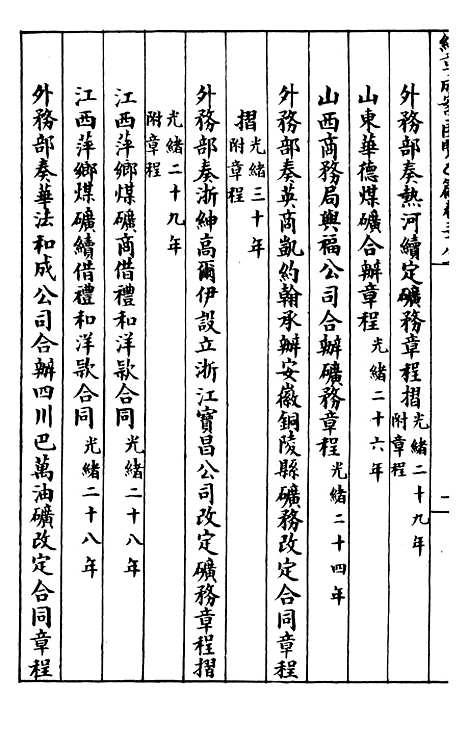 外務部奏熱河續定礦務章程摺光緒二十九年附章程
山東華德煤礦合辦章程光緒二十六年
山西商務局與福公司合辦礦務章程光緒二十四年
外務部奏英商凱約翰承辦安徽銅陵縣礦務改定合同章程
摺光緒三十年附章程
外務部奏浙紳高爾伊設立浙江寶昌公司改定礦務章程摺
光緒二十九年附章程
江西萍鄉煤礦商借禮和洋款合同光緒二十八年
江西萍鄉煤礦續借禮和洋款合同光緒二十八年
外務部奏華法和成公司合辦四川巴萬油礦改定合同章程